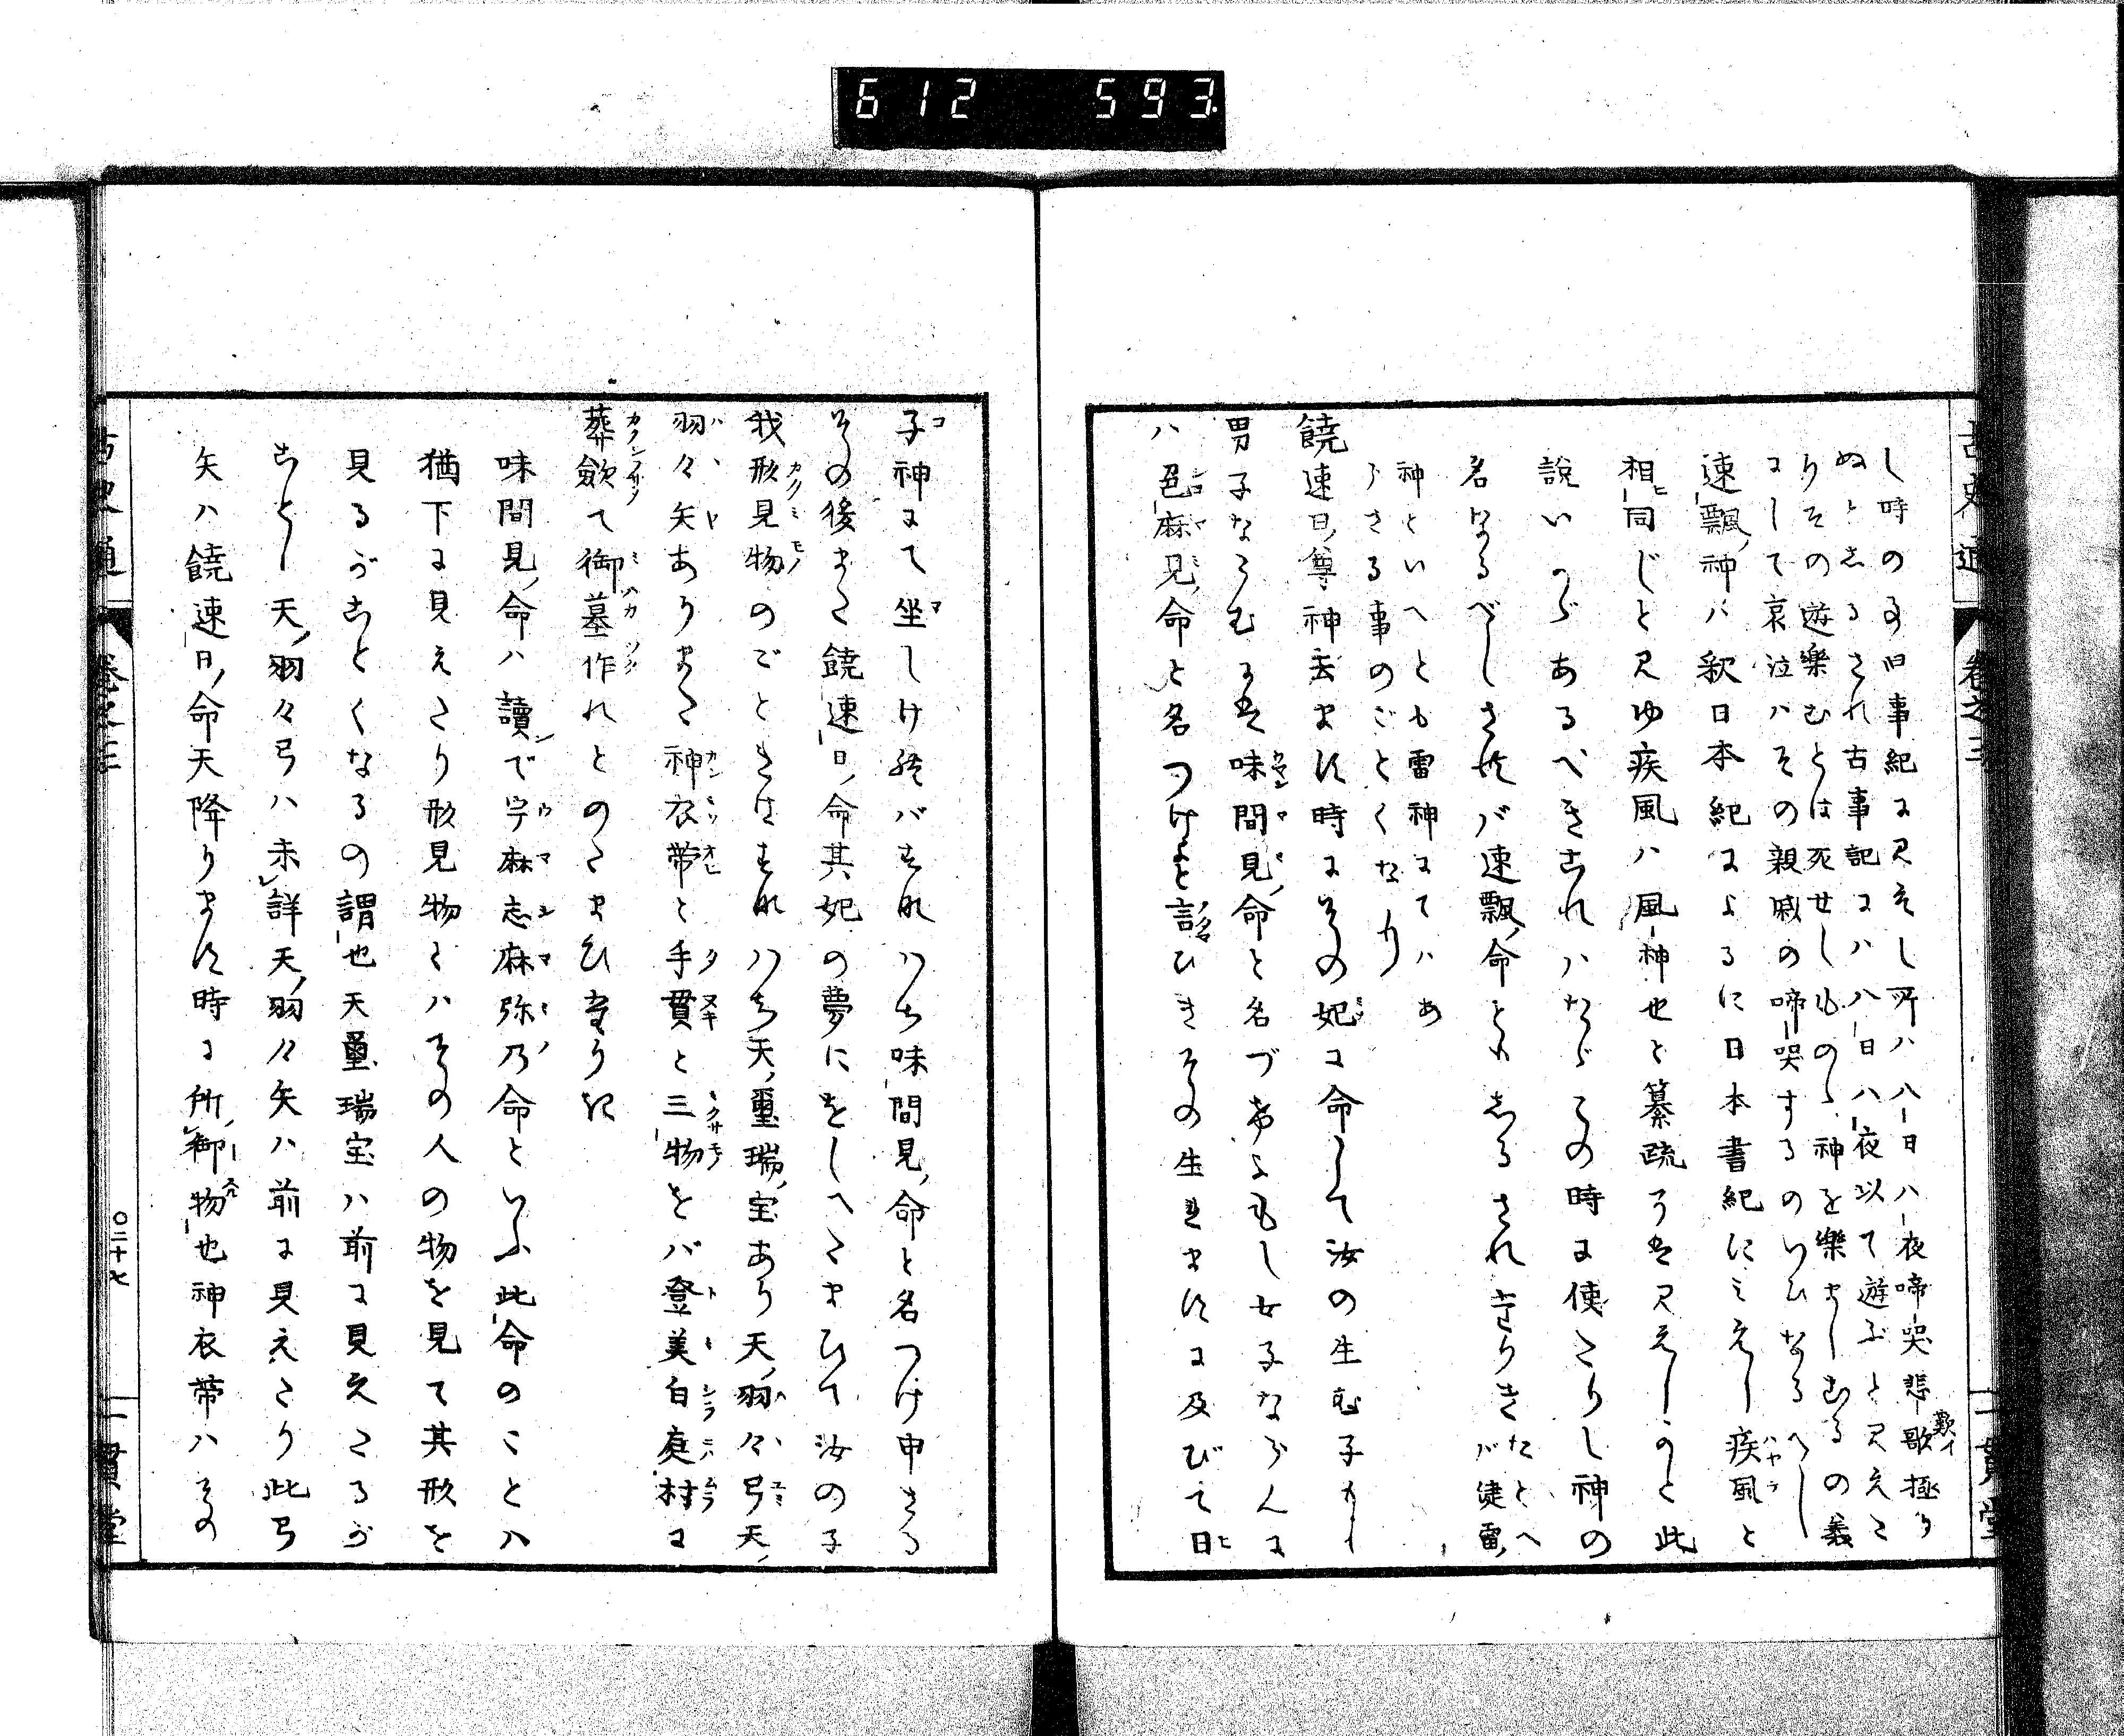 612 593
古史通 巻之三 一貫堂
し時の事旧事紀に見えし所ハ八日八夜啼哭悲歌極り
歎イ
ぬとしるされ古事記にハ八日八夜以て遊ぶと見えた
りその遊樂むとは死せしもの神を樂ましむるの義
にして哀泣ハその親戚の啼哭するのいひなるへし
速飄神ハ釈日本紀によるに日本書紀にみえし疾風と
相同じと見ゆ疾風ハ風神也と纂疏に見えしかと此
説いかゞあるべきこれハたゞその時に使たりし神の
名なるべしされバ速飄命ともしるされたりきたとへバ健雷
神といへとも雷神にてハあ
らさる事のごとくなり
饒速日尊神去ます時にその妃に命して汝の生む子もし
男子ならむには味間見命と名づけよもし女子ならんに
ハ色麻見命と名つけよと詔ひきその生ますに及びて日
子神にて坐しけれバすなハち味間見命と名つけ申さる
その後また饒速日命其妃の夢にをしへたまひて汝の子
我形見物のごときはすなハち天璽瑞宝あり天羽々弓天
羽々矢ありまた神衣帯と手貫と三物をバ登美白庭村に
葬斂て御墓作れとのたまひたりき
味間見命ハ讀で宇麻志麻弥乃命といふ此命のことハ
猶下に見えたり形見物とハその人の物を見て其形を
見るがことくなるの謂也天璽瑞宝ハ前に見えたるが
ことし天羽々弓ハ未詳天羽々矢ハ前に見えたり此弓
矢ハ饒速日命天降ります時に所御物也神衣帯ハその
古史通 巻之三 〇二十七 一貫堂